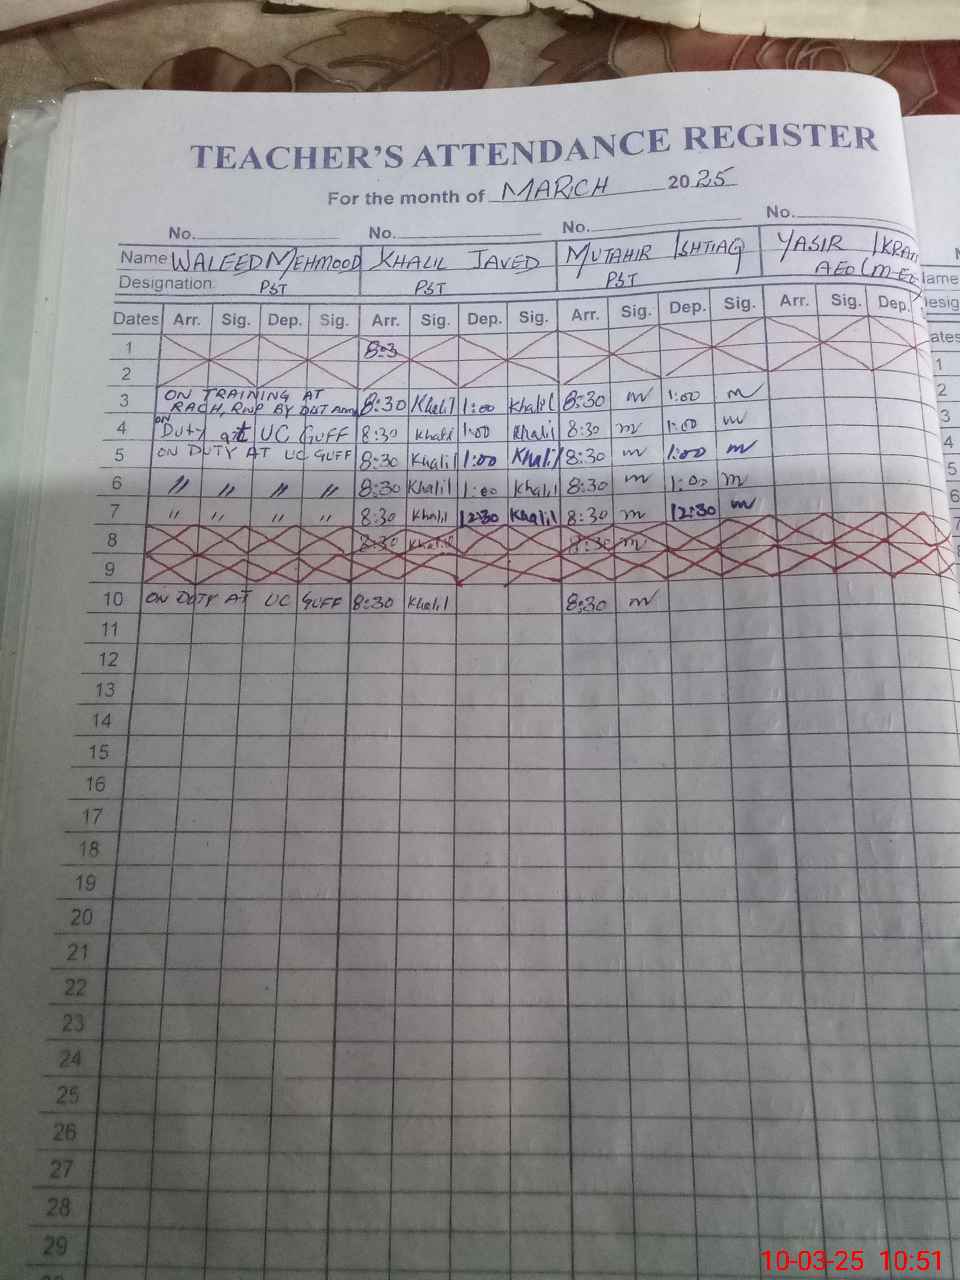 TEACHER'S ATTENDANCE REGISTER
For the month of MARCH 2025
No. No. No. No.
Name WALEED MEHMOOD KHALIL JAVED MUTAHIR ISHTIAQ YASIR IKRAM
Designation PST PST PST AEO
Dates Arr. Sig. Dep. Sig. Arr. Sig. Dep. Sig. Arr. Sig. Dep. Sig. Arr. Sig. Dep.
1 8:3
2
3 ON TRAINING AT RACH, RNP BY 8:30 Khalil 1:00 Khalil 8:30 m 1:00 m
4 ON Duty at UC GUFF 8:30 Khalil 1:00 Khalil 8:30 m 1:00 m
5 ON DUTY AT UC GUFF 8:30 Khalil 1:00 Khalil 8:30 m 1:00 m
6 〃 〃 〃 〃 8:30 Khalil 1:00 Khalil 8:30 m 1:00 m
7 〃 〃 〃 〃 8:30 Khalil 12:30 Khalil 8:30 m 12:30 m
8 8:30 Khalil 8:30 m
9
10 ON DUTY AT UC GUFF 8:30 Khalil 8:30 m
11
12
13
14
15
16
17
18
19
20
21
22
23
24
25
26
27
28
29
10-03-25 10:51